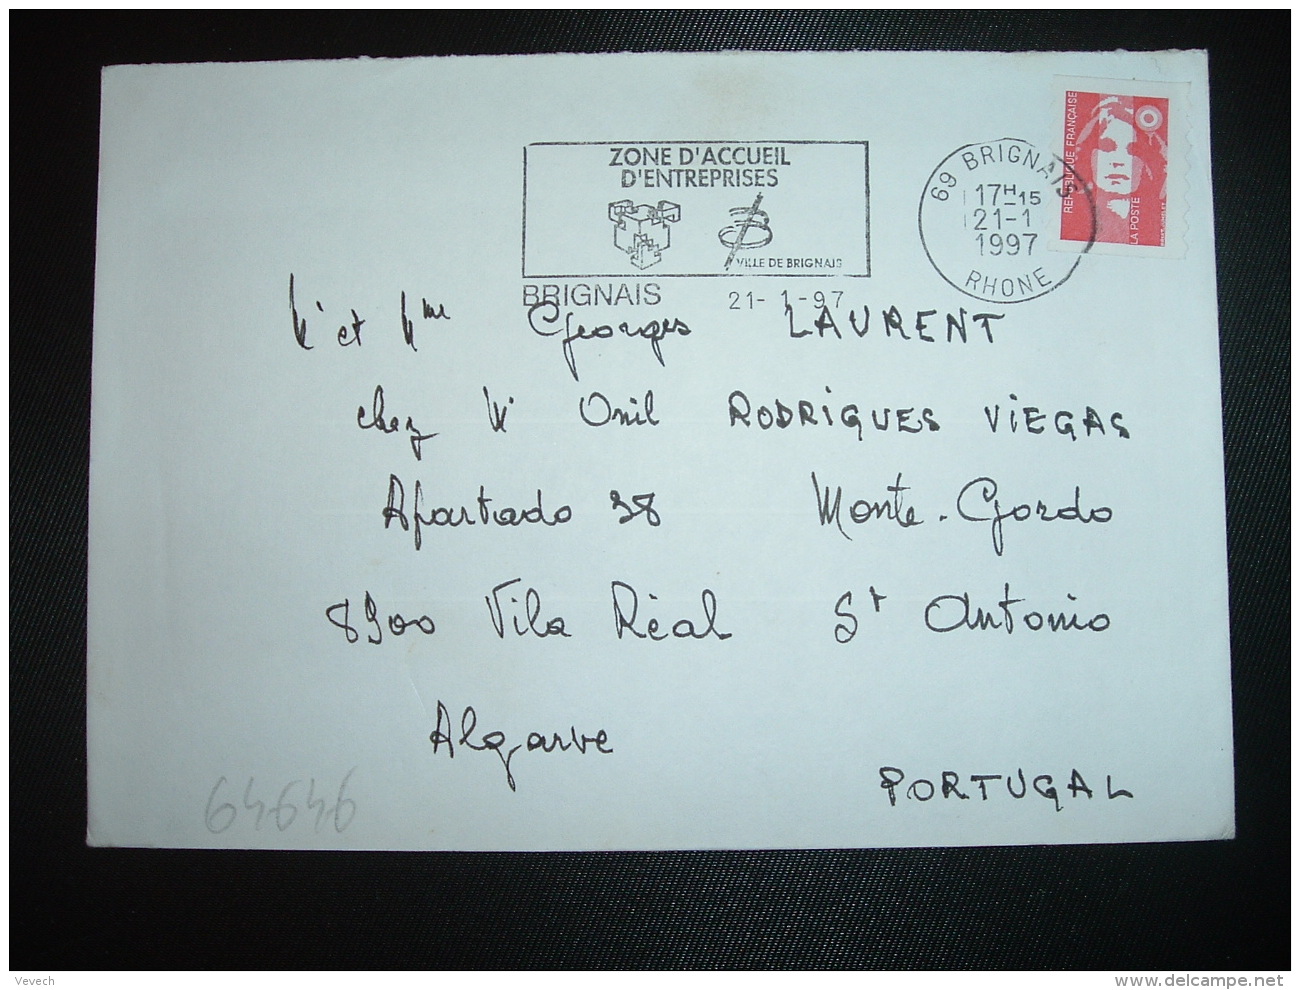 ZONE D'ACCUEIL
D'ENTREPRISES
VILLE DE BRIGNAIS
BRIGNAIS 21- 1-97
69 BRIGNAIS
17H15
21-1
1997
RHONE
REPUBLIQUE FRANÇAISE
LA POSTE
Mr et Mme Georges LAURENT
chez Mr Onil RODRIGUES VIEGAS
Apartado 38 Monte-Gordo
8900 Vila Réal St Antonio
Algarve
PORTUGAL
64646
Vevech
www.delcampe.net